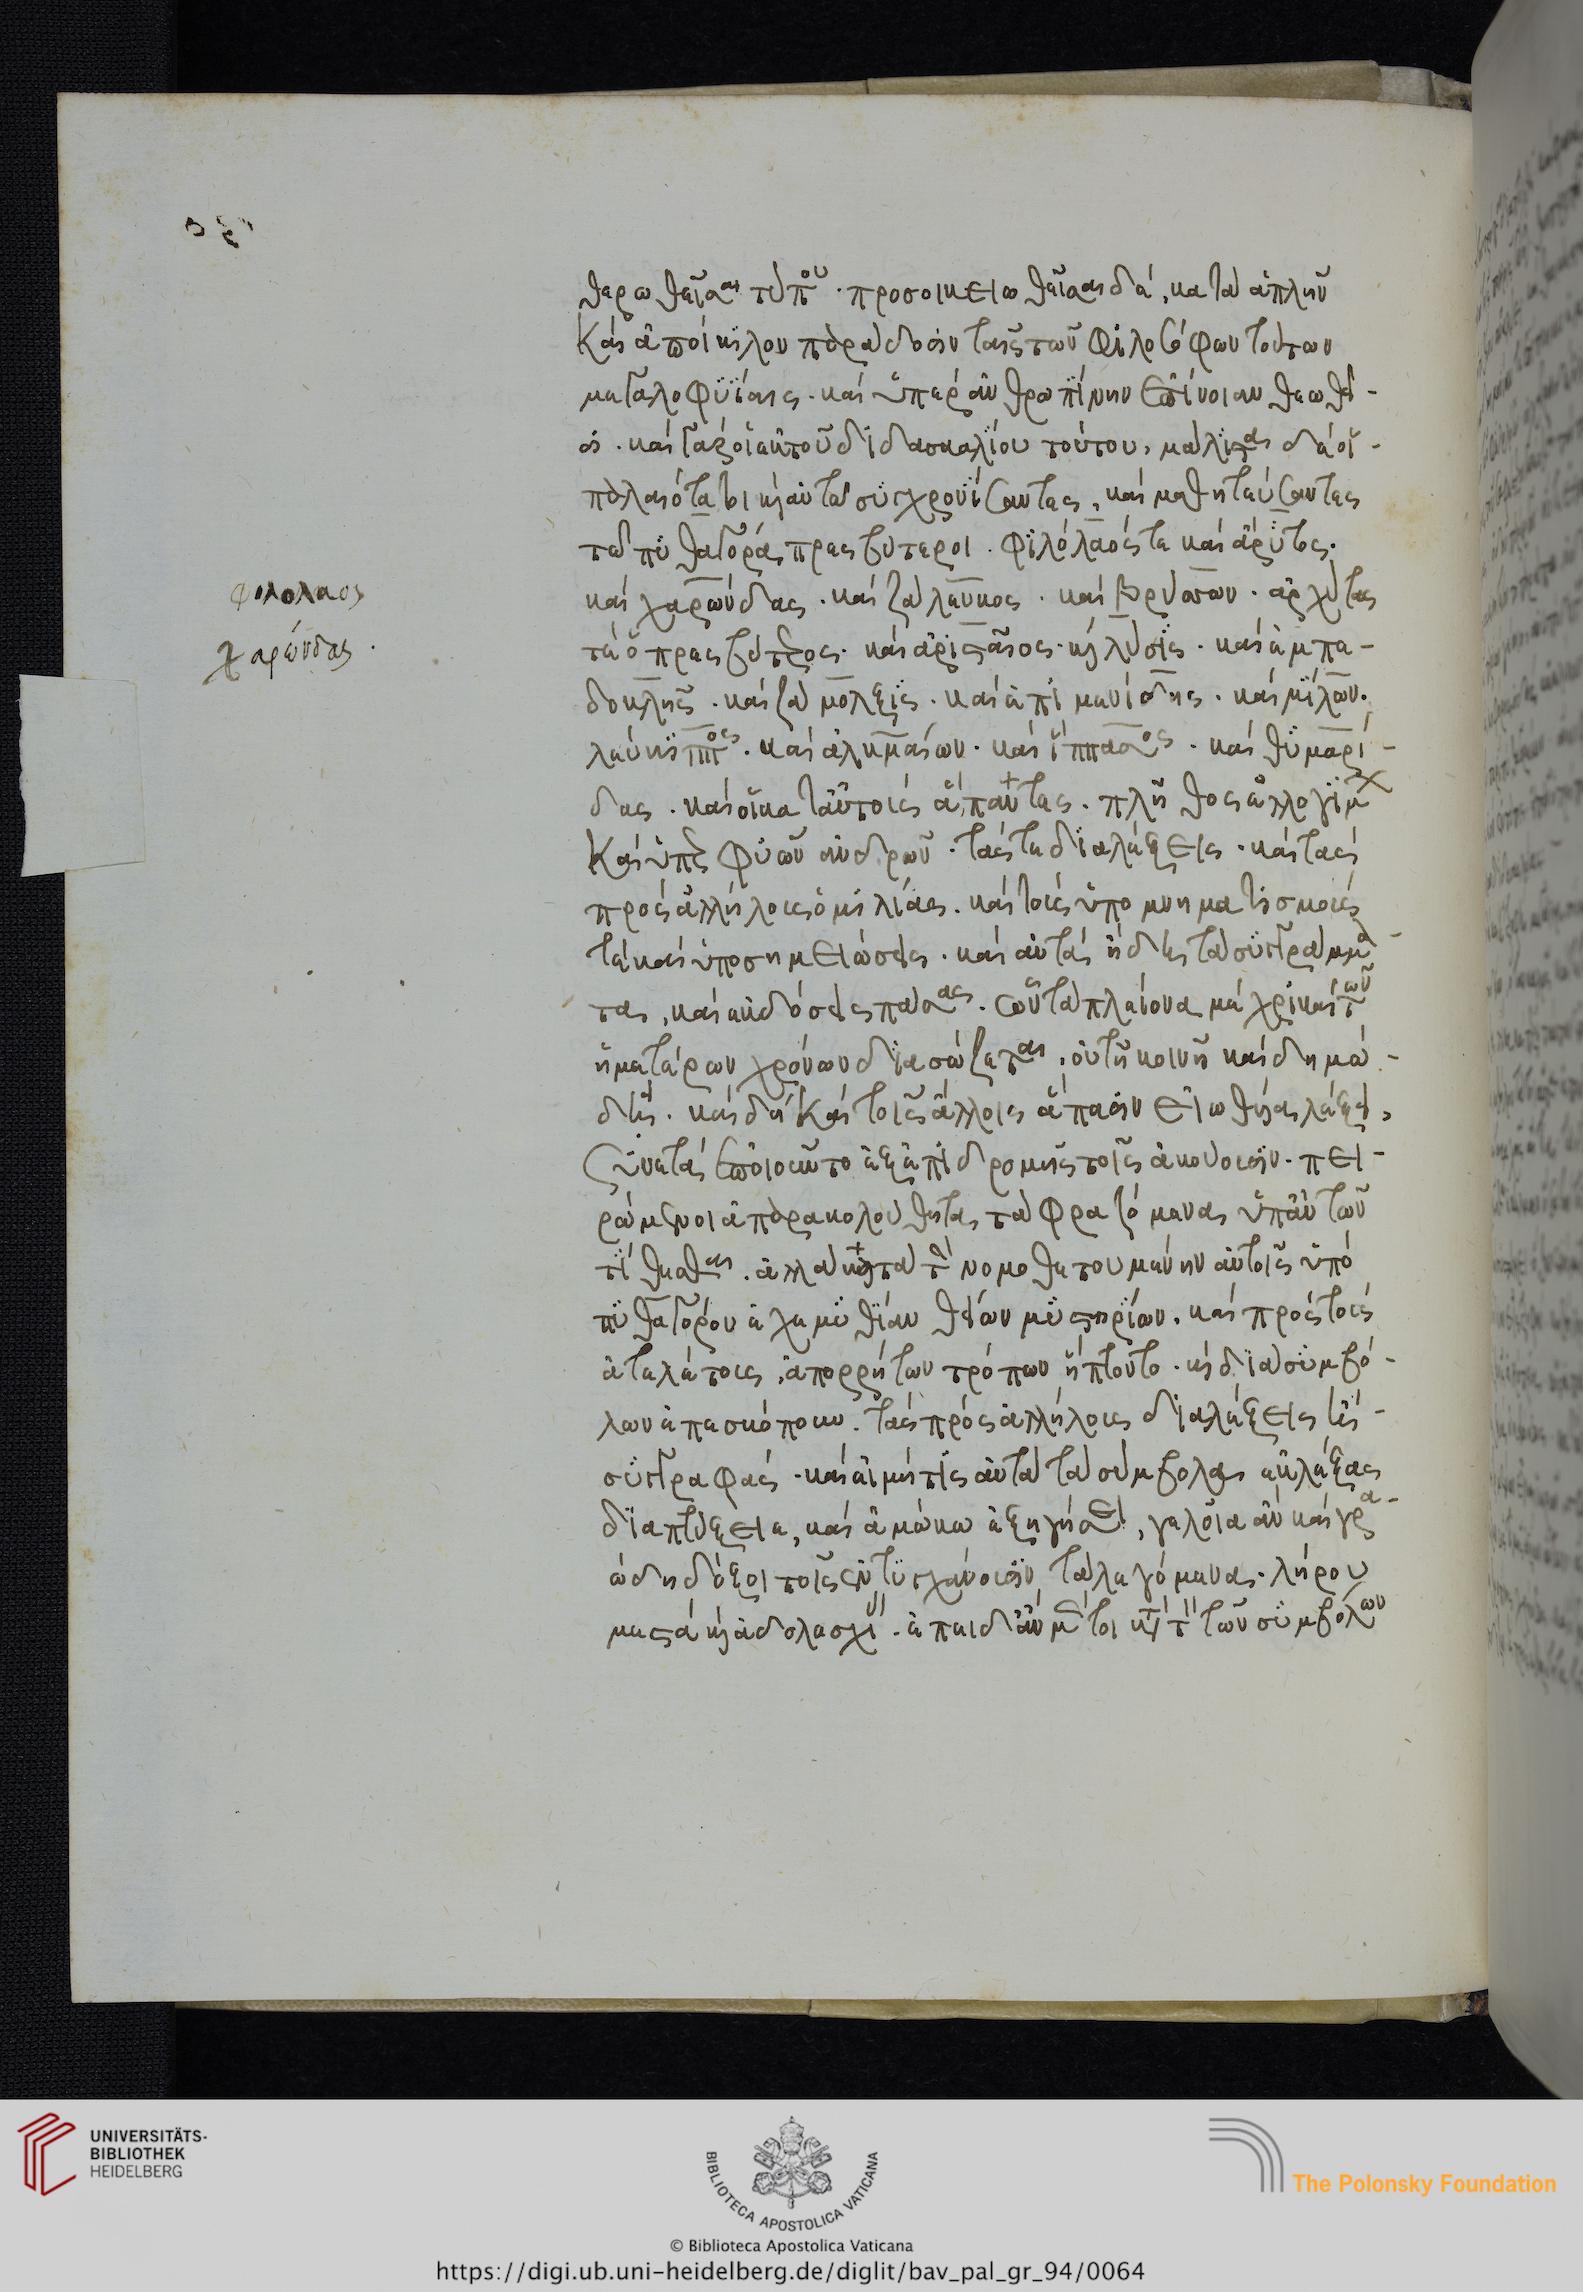 θερωθεῖσαι τύπου · προσοικειωθεῖσαι δέ, κατὰ ἁπλῆν
καὶ ἀποίκιλον παράδοσιν ταῖς τῶν φιλοσόφων τούτων
μεγαλοφυΐαις · καὶ ὑπὲρ ἀνθρωπίνην ἐπίνοιαν θεωθεῖ-
σι · καὶ γὰρ οἱ ἐκ τοῦ διδασκαλίου τούτου, μάλιστα δὲ οἱ
παλαιότατοι καὶ αὐτῷ συγχρονίσαντες, καὶ μαθητεύσαντες
τῷ πυθαγόρᾳ πρεσβύτεροι · φιλόλαός τε καὶ εὔρυτος ·
καὶ χαρώνδας · καὶ ζάλευκος · καὶ βρύσων · ἀρχύτας
τε ὁ πρεσβύτερος · καὶ ἀρισταῖος · καὶ λύσις · καὶ ἐμπε-
δοκλῆς · καὶ ζάμολξις · καὶ ἐπιμενίδης · καὶ μίλων ·
λεύκιππος · καὶ ἀλκμαίων · καὶ ἵππασος · καὶ θυμαρί-
δας · καὶ οἱ κατ' αὐτοὺς ἅπαντες · πλῆθος ἐλλογίμων
καὶ ὑπερφυῶν ἀνδρῶν · τάς τε διαλέξεις · καὶ τὰς
πρὸς ἀλλήλους ὁμιλίας · καὶ τοὺς ὑπομνηματισμούς
τε καὶ ὑποσημειώσεις · καὶ αὐτὰ ἤδη τὰ συγγράμμα-
τα, καὶ ἐκδόσεις πάσας · ὧν τὰ πλείονα μέχρι καὶ τῶν
ἡμετέρων χρόνων διασώζεται, οὐ τῇ κοινῇ καὶ δημώ-
δει · καὶ δὴ καὶ τοῖς ἄλλοις ἅπασιν εἰωθυίᾳ λέξει,
συνετὰ ἐποιοῦντο ἐξ ἐπιδρομῆς τοῖς ἀκούουσιν · πει-
ρώμενοι εὐπαρακολούθητα τὰ φραζόμενα ὑπ' αὐτῶν
τίθεσθαι · ἀλλὰ κατὰ τὴν νομοθετουμένην αὐτοῖς ὑπὸ
πυθαγόρου ἐχεμυθίαν θείων μυστηρίων · καὶ πρὸς τοὺς
ἀτελέστους, ἀπορρήτων τρόπων ἥπτοντο · καὶ διὰ συμβό-
λων ἐπεσκόπουν τὰς πρὸς ἀλλήλους διαλέξεις ἢ
συγγραφάς · καὶ εἰ μή τις αὐτὰ τὰ σύμβολα ἐκλέξας
διαπτύξειε, καὶ ἀμώκω ἐξηγήσει, γελοῖα ἂν καὶ γρα-
ώδη δόξοι τοῖς ἐντυγχάνουσιν τὰ λεγόμενα · λήρου
μεστὰ καὶ ἀδολεσχίας · ἐπειδὰν μέντοι κατὰ τὸν τῶν συμβόλων
φιλολαος
χαρώνδας ·
UNIVERSITÄTS-
BIBLIOTHEK
HEIDELBERG
BIBLIOTECA APOSTOLICA VATICANA
© Biblioteca Apostolica Vaticana
The Polonsky Foundation
https://digi.ub.uni-heidelberg.de/diglit/bav_pal_gr_94/0064